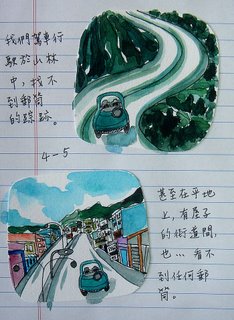 我們駕車行
駛於山林
中，找不
到郵筒
的踪跡。
4-5
甚至在平地
上，有房子
的街道間，
也…看不
到任何郵
筒。